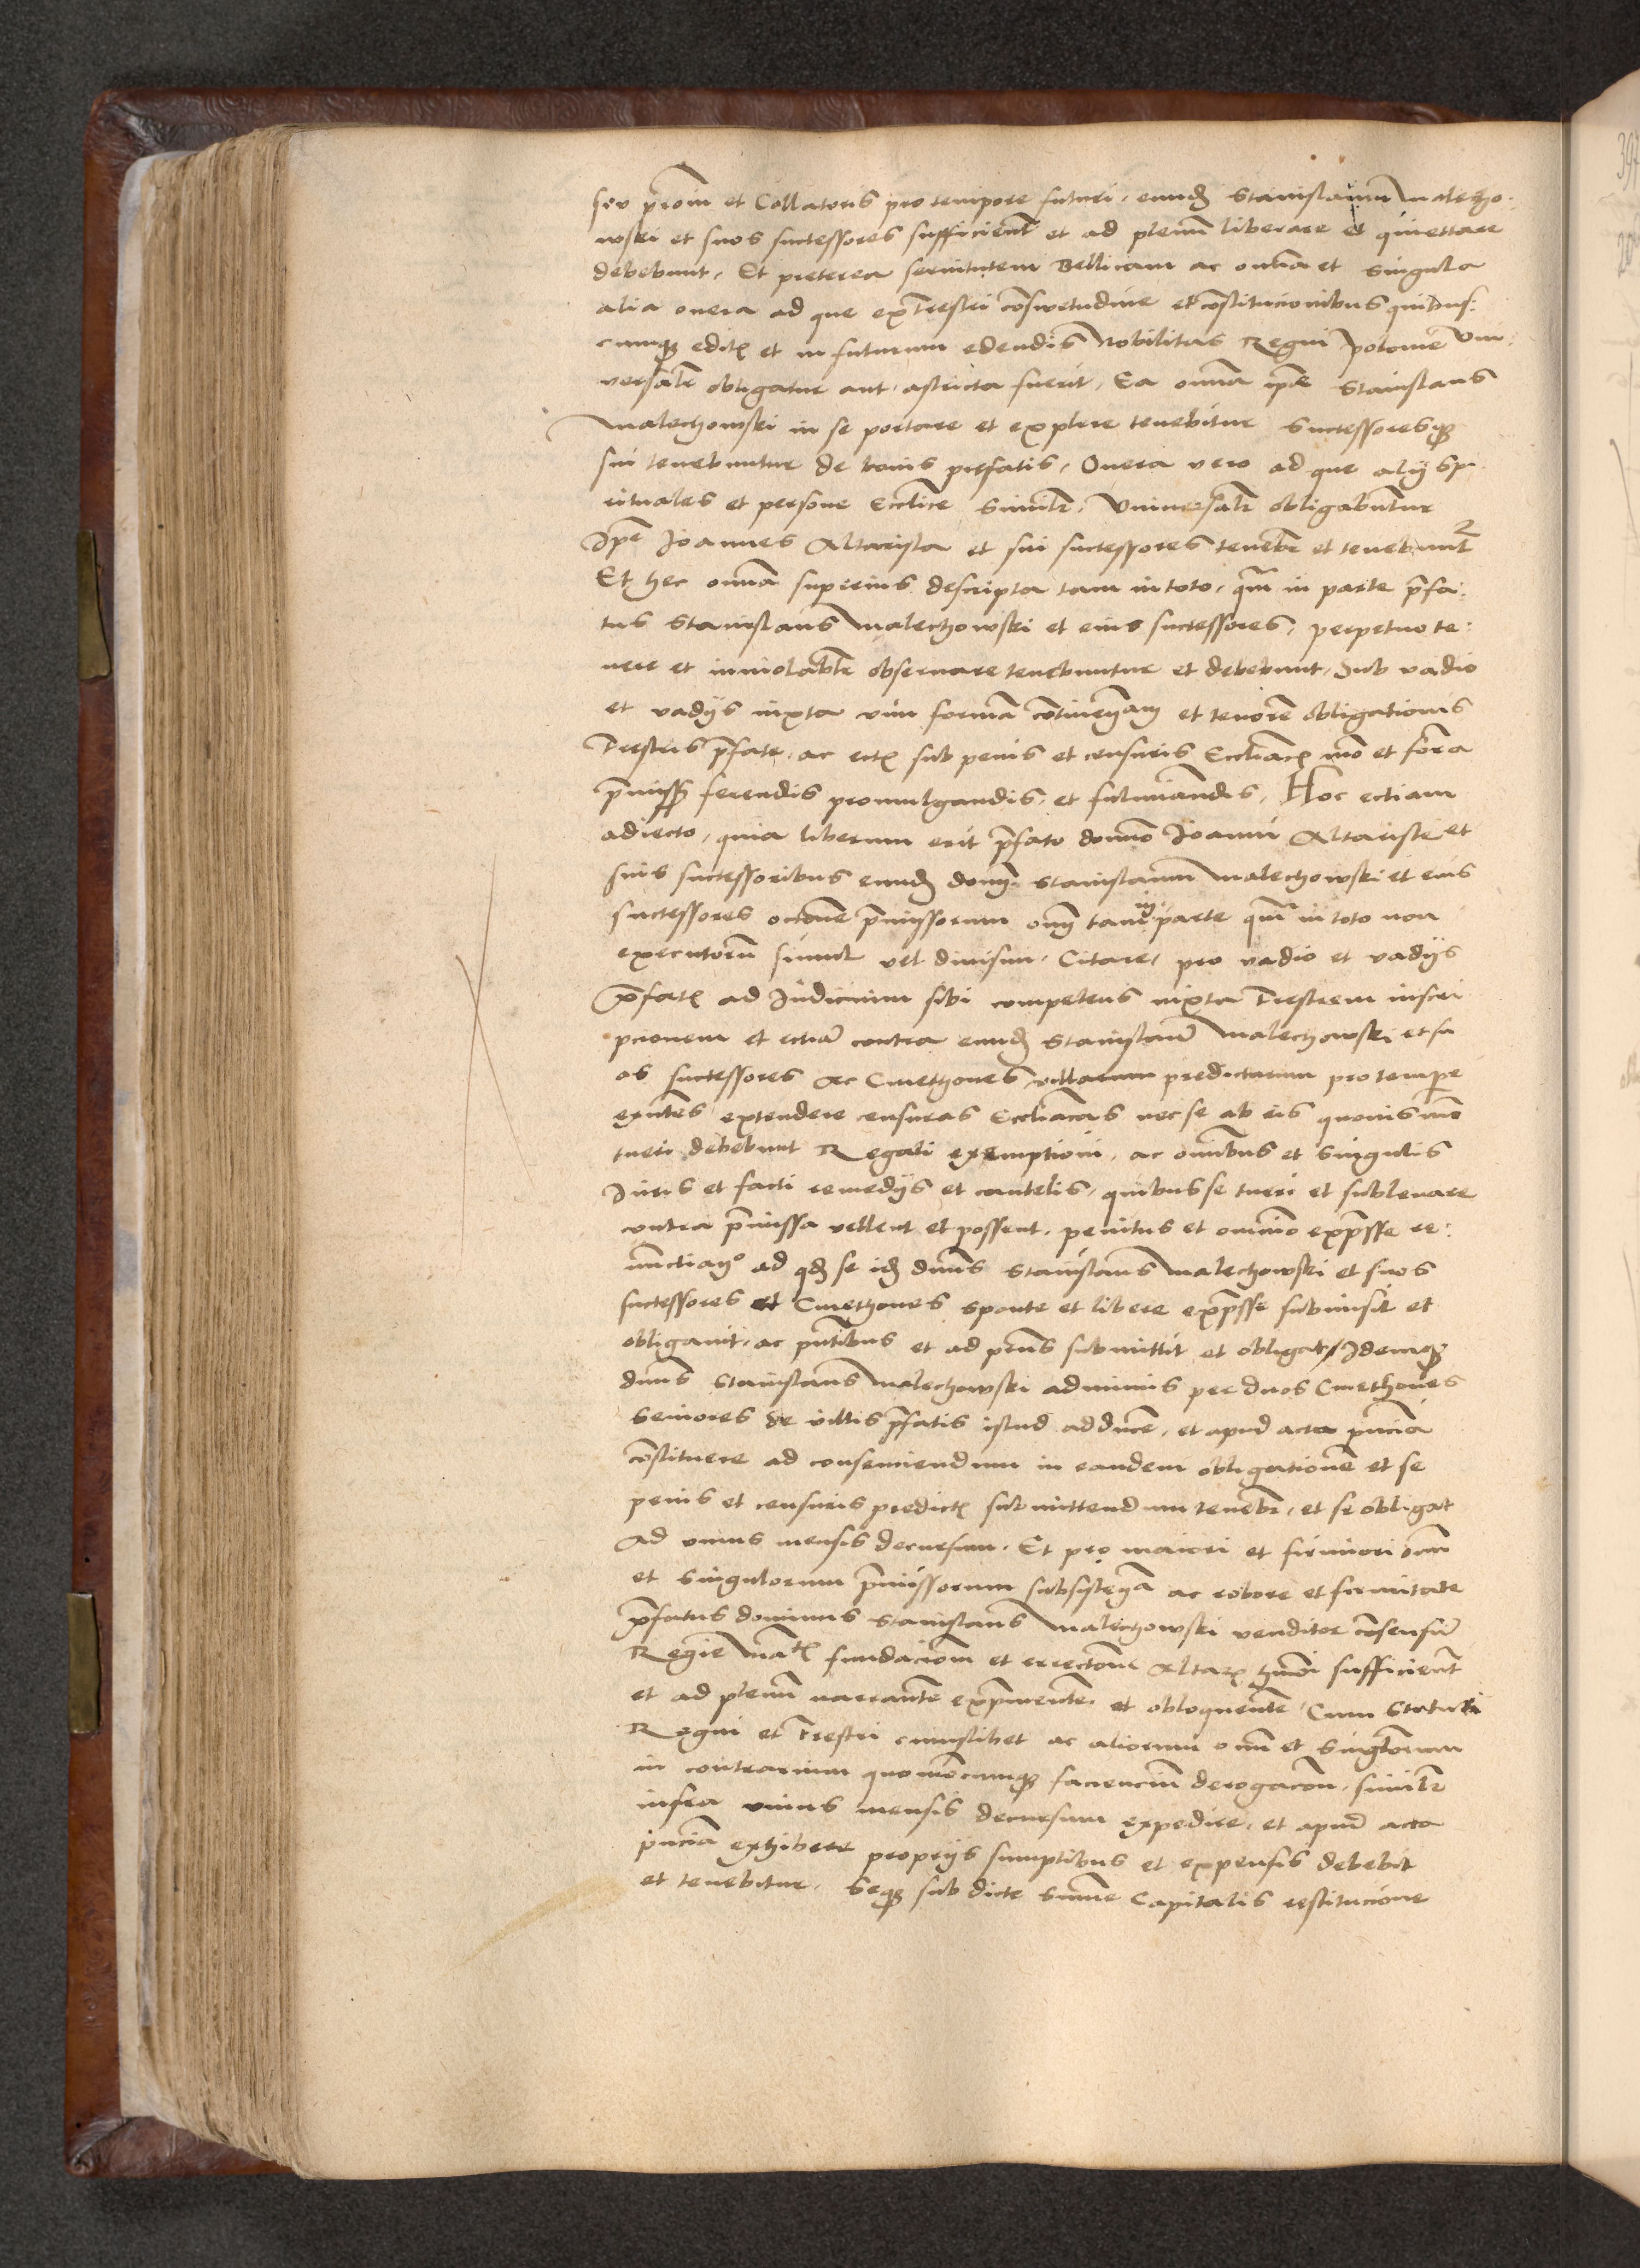 seu pronm et Collatoris pro tempore futuri, eundẽ Stanislaum malecho-
wski et suos successores sufficient et ad plenũ liberare et quiettare
debebunt, Et preterea seruitutem Bellicam ac omnia et singula
alia onera ad que ex terrestri cõswetudine et cõstitucionibus quibus:
cunqꝫ edit et in futurum edendis Nobilitas Regni polonie vni:
versalr obligatur aut astricta fuerit, Ea omnia ipẽ Stanislaus
malechowski in se portare et explere tenebitur Successoresqꝫ
sui tenebuntur de bonis prefatis, Onera vero ad que alij spi-
rituales et persone Ecclice simltr, Vniuersalr obligabuntur
Ipẽ Joannes Altarista et sui successores tenebr et tenebunt
Et hec omnia superius descripta tam in toto, qm in parte prefa:
tus Stanislaus malechowski et eius successores, perpetuo te:
nere et inuiolablr obseruare tenebuntur et debebunt, Sub vadio
et vadijs iuxta vim formã cõtinenciam et tenorẽ obligationis
Trestris prefate, ac ecĩ sub penis et censuris Eccliac mo et forma
premissis ferendis promulgandis, et fulminandis, Hoc ectiam
adiecto, quia liberum erit prefato domno Joanni Altariste et
suis successoribus eundẽ domnũ Stanislaum malechowski et eius
successores occone premissorum omnĩ tam in parte qm in toto non
executorũ simul vel diuisim, Citare, pro vadio et vadijs
prefat ad Judicium sibi competens iuxta Trestrem inscri
pcionem et ectiã contra eundẽ Stanislaũ malechowski et su
os successores ac Cmethones villarum predictarum pro tempore
exñtes extendere censuras Eccliacas nec se ab eis quouis mo
tueri debebunt Regali exemptioni, ac omnibus et singulis
Juris et facti remedijs et cautelis, quibus se tueri et subleuare
contra premissa vellent et possent, penitus et omnino expresse re:
nunctiando ad qd se idẽ dnus Stanislaus malechowski et suos
successores et Cmethones sponte et libere expresse submisit et
obligauit, ac pñtibus et ad pñs submittit et obligat, Idemqꝫ
dnus Stanislaus malechowski adminus per duos Cmethones
Seniores de villis prefatis istud adducẽ, et apud acta pñcia
cõstituere ad consenciendum in eandem obligationẽ et se
penis et censuris predict submittendum tenebr, et se obligat
Ad vnius mensis decursum, Et pro maiori et firmiori omĩ
et singulorum premissorum subsistencia ac robore et firmitate
prefatus dominus Stanislaus malechowski venditor cõsensũ
Regie Mat fundacionem et erectionẽ Altar hmoi sufficient
et ad plenũ narrantẽ exprimentẽ, et obloquentẽ Cum Statuti
Regni et Trestri cuiuslibet ac aliorum omniũ et singulorum
in contrarium quomocunqꝫ facienciũ derogacion, similtr
infra vnius mensis decursum expedire, et apud acta
pñcia exhibere proprijs sumptibus et expensis debebit
et tenebitur, Seqꝫ sub dicte summe Capitalis restitucione